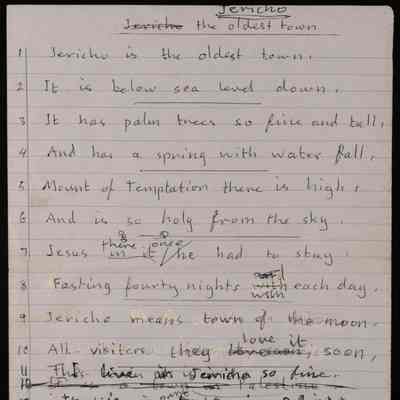 Jericho
Jericho the oldest town
1 Jericho is the oldest town.
2 It is below sea level down.
3 It has palm trees so fine and tall,
4 And has a spring with water fall.
5 Mount of Temptation there is high,
6 And is so holy from the sky.
there once
7 Jesus in it he had to stay
8 Fasting fourty nights with each day.
with
9 Jericho means town of the moon.
love it
10 All visitors they soon,
11 This live in Jericho so fine.
10 It is a town